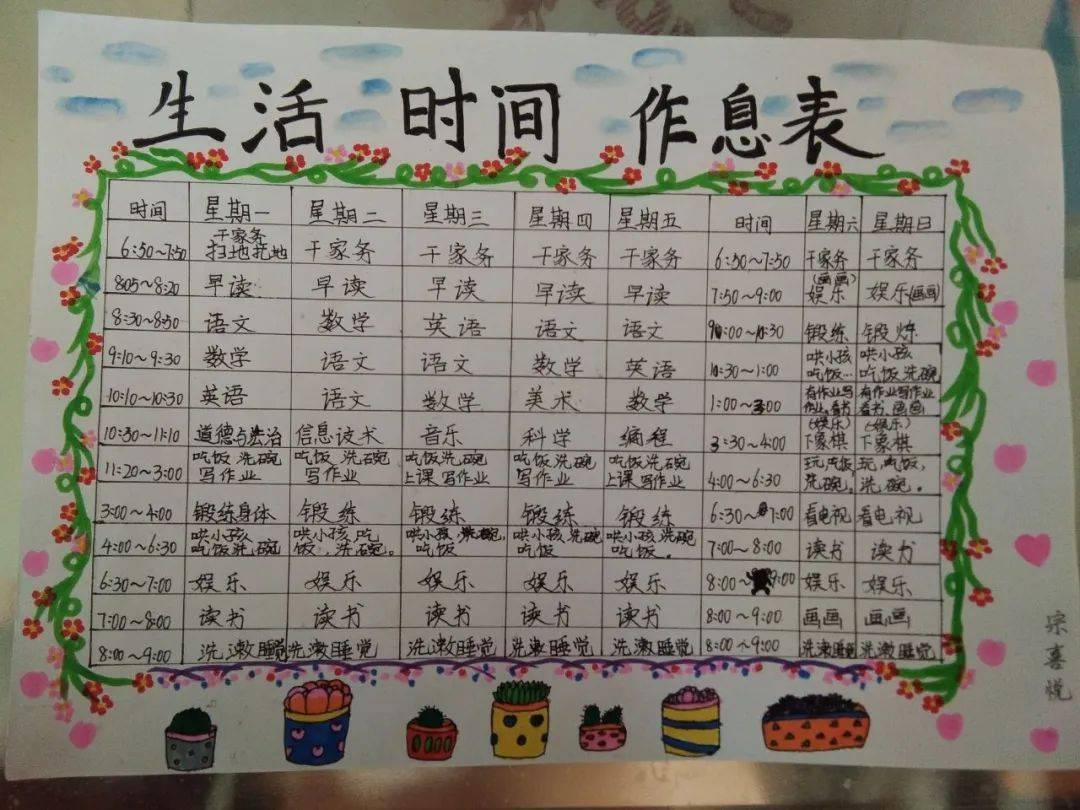 生活 时间 作息表
时间 星期一 星期二 星期三 星期四 星期五 时间 星期六 星期日
6:50~7:50 干家务 扫地扎地 干家务 干家务 干家务 干家务 6:50~7:50 干家务 干家务
8:05~8:20 早读 早读 早读 早读 早读 7:50~9:00 (画画) 娱乐 娱乐(画画)
8:30~8:50 语文 数学 英语 语文 语文 9:00~10:30 锻练 锻炼
9:10~9:30 数学 语文 语文 数学 英语 10:30~1:00 哄小孩 吃饭… 哄小孩 吃饭洗碗
10:10~10:30 英语 语文 数学 美术 数学 1:00~3:00 有作业写作业,看书 有作业写作业 看书、画画
10:30~11:10 道德与法治 信息议术 音乐 科学 编程 3:30~4:00 (娱乐) 下象棋 (娱乐) 下象棋
11:20~3:00 吃饭 洗碗 写作业 吃饭、洗碗 写作业 吃饭洗碗 上课 写作业 吃饭、洗碗 写作业 吃饭洗碗 上课写作业 4:00~6:30 玩,吃饭 洗碗。 玩,吃饭, 洗碗。
3:00~4:00 锻练身体 锻练 锻练 锻练 锻练 6:30~7:00 看电视 看电视
4:00~6:30 哄小孩 吃饭洗碗 哄小孩,吃饭,洗碗。 哄小孩,洗碗, 吃饭 哄小孩洗碗 吃饭 哄小孩洗碗 吃饭。 7:00~8:00 读书 读书
6:30~7:00 娱乐 娱乐 娱乐 娱乐 娱乐 8:00~9:00 娱乐 娱乐
7:00~8:00 读书 读书 读书 读书 读书 8:00~9:00 画画 画画
8:00~9:00 洗漱睡觉 洗漱睡觉 洗漱睡觉 洗漱睡觉 洗漱睡觉 8:00~9:00 洗漱睡觉 洗漱睡觉
宗喜悦